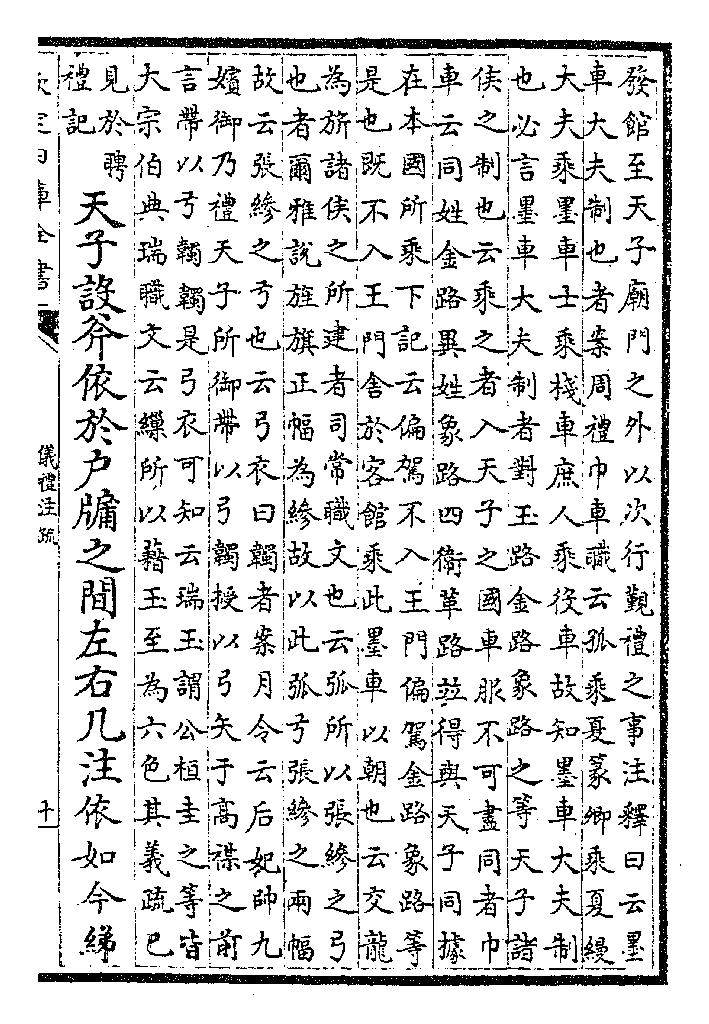 發館至天子廟門之外以次行覲禮之事注釋曰云墨
車大夫制也者案周禮巾車職云孤乘夏篆卿乘夏縵
大夫乘墨車士乘棧車庶人乘役車故知墨車大夫制
也必言墨車大夫制者對玉路金路象路之等天子諸
侯之制也云乘之者入天子之國車服不可盡同者巾
車云同姓金路異姓象路四衛革路並得與天子同據
在本國所乘下記云偏駕不入王門偏駕金路象路等
是也既不入王門舍於客館乘此墨車以朝也云交龍
為旂諸侯之所建者司常職文也云弧所以張縿之弓
也者爾雅說旌旗正幅為縿故以此弧弓張縿之兩幅
故云張縿之弓也云弓衣曰韣者案月令云后妃帥九
嬪御乃禮天子所御帶以弓韣授以弓矢于高禖之前
言帶以弓韣韣是弓衣可知云瑞玉謂公桓圭之等皆
大宗伯典瑞職文云繅所以藉玉至為六色其義疏已
見於聘
禮記
天子設斧依於户牖之間左右几注依如今綈
欽定四庫全書
儀禮注疏
十